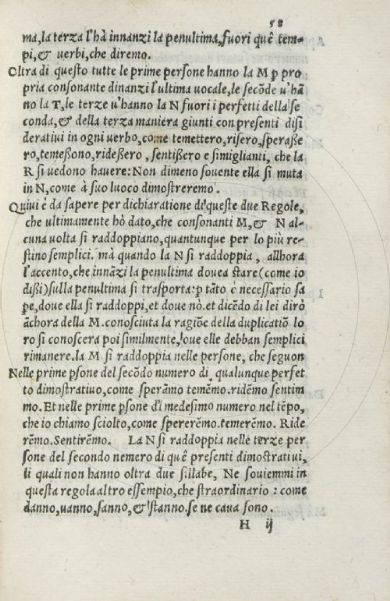 58
ma, la terza l'hà innanzi la penultima, fuori quē tem-
pi, & verbi, che diremo.
Oltra di questo tutte le prime persone hanno la M p pro
pria consonante dinanzi l'ultima uocale, le secōde u'hā
no la T, le terze u'hanno la N fuori i perfetti della se
conda, & della terza maniera giunti con presenti disi
deratiui in ogni uerbo, come temettero, risero, speraße
ro, temeßono, rideßero, sentißero e simiglianti, che la
R si uedono hauere: Non dimeno souente ella si muta
in N, come à suo luoco dimostreremo.
Quiui è da sapere per dichiaratione di queste due Regole,
che ultimamente hò dato, che consonanti M, & N al-
cuna uolta si raddoppiano, quantunque per lo più re-
stino semplici. mà quando la N si raddoppia, allhora
l'accento, che innāzi la penultima douea stare (come io
dißi) sulla penultima si trasporta: p tāto è necessario sa
pe, doue ella si raddoppi, et doue nò. et dicēdo di lei dirò
āchora della M. conosciuta la ragiōe della duplicatiō lo
ro si conoscera poi similmente, oue elle debban semplici
rimanere. la M si raddoppia nelle persone, che seguon
Nelle prime psone del secōdo numero di qualunque perfet
to dimostratiuo, come sperāmo temēmo. ridēmo sentim
mo. Et nelle prime psone dī medesimo numero nel tēpo,
che io chiamo sciolto, come spererēmo. temerēmo. Ride
rēmo. Sentirēmo. La N si raddoppia nelle terze per
sone del secondo nemero di quē presenti dimostratiui,
li quali non hanno oltra due sillabe, Ne souiemmi in
questa regola altro essempio, che straordinario: come
danno, uanno, fanno, & stanno. se ne caua sono.
H ij